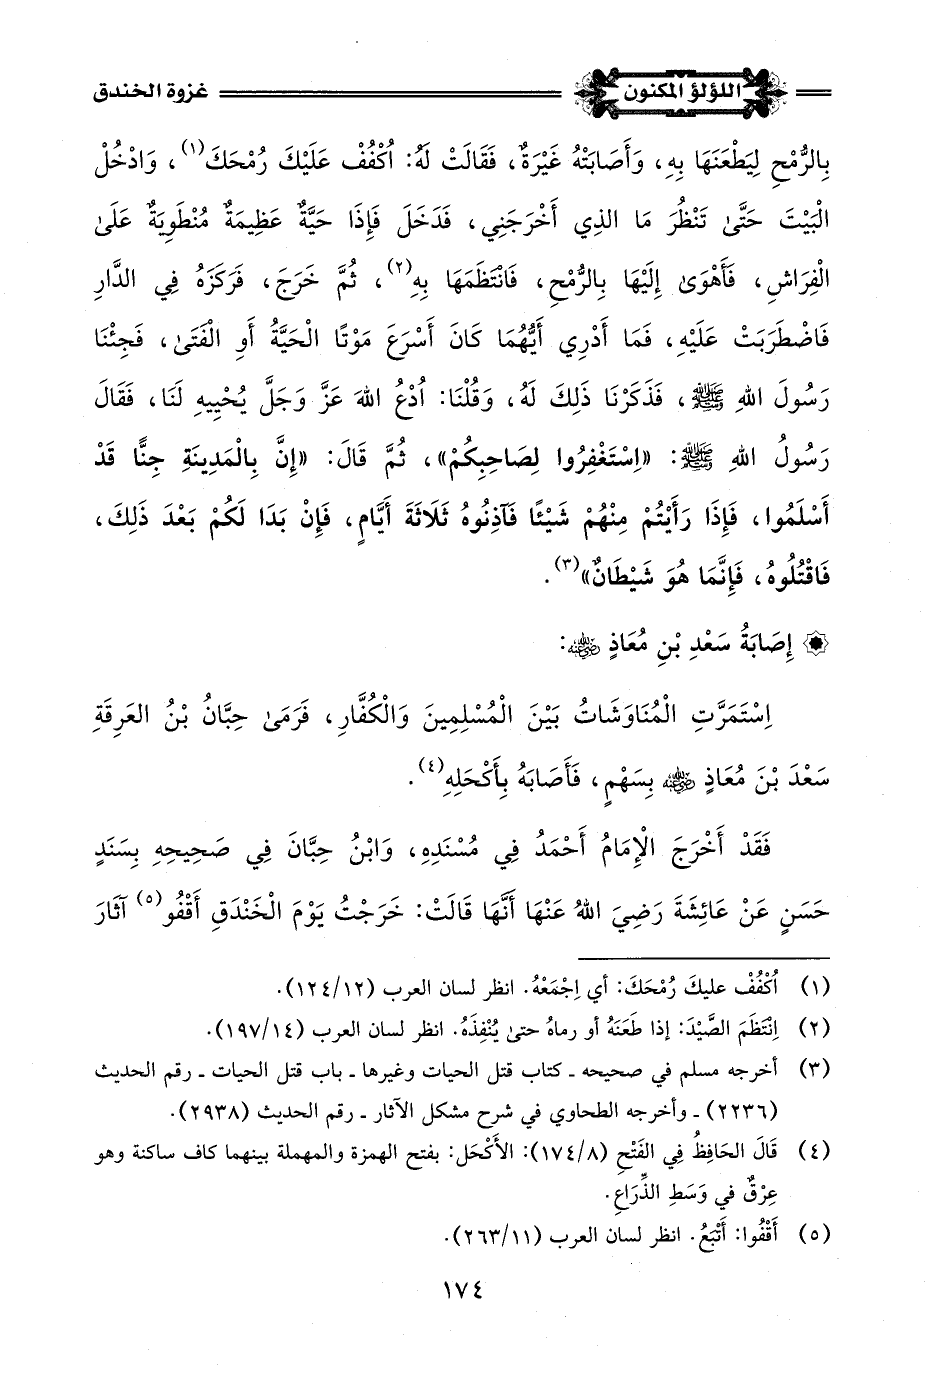 اللؤلؤ المكنون غزوة الخندق
بِالرُّمْحِ لِيَطْعَنَهَا بِهِ، وَأَصَابَتْهُ غَيْرَةٌ، فَقَالَتْ لَهُ: اُكْفُفْ عَلَيْكَ رُمْحَكَ(١)، وَادْخُلْ
الْبَيْتَ حَتَّىٰ تَنْظُرَ مَا الذِي أَخْرَجَنِي، فَدَخَلَ فَإِذَا حَيَّةٌ عَظِيمَةٌ مُنْطَوِيَةٌ عَلَىٰ
الْفِرَاشِ، فَأَهْوَىٰ إِلَيْهَا بِالرُّمْحِ، فَانْتَظَمَهَا بِهِ(٢)، ثُمَّ خَرَجَ، فَرَكَزَهُ فِي الدَّارِ
فَاضْطَرَبَتْ عَلَيْهِ، فَمَا أَدْرِي أَيُّهُمَا كَانَ أَسْرَعَ مَوْتًا الْحَيَّةُ أَوِ الْفَتَىٰ، فَجِئْنَا
رَسُولَ اللهِ ﷺ، فَذَكَرْنَا ذَلِكَ لَهُ، وَقُلْنَا: اُدْعُ اللهَ عَزَّ وَجَلَّ يُحْيِيهِ لَنَا، فَقَالَ
رَسُولُ اللهِ ﷺ: «اِسْتَغْفِرُوا لِصَاحِبِكُمْ»، ثُمَّ قَالَ: «إِنَّ بِالْمَدِينَةِ جِنًّا قَدْ
أَسْلَمُوا، فَإِذَا رَأَيْتُمْ مِنْهُمْ شَيْئًا فَآذِنُوهُ ثَلَاثَةَ أَيَّامٍ، فَإِنْ بَدَا لَكُمْ بَعْدَ ذَلِكَ،
فَاقْتُلُوهُ، فَإِنَّمَا هُوَ شَيْطَانٌ»(٣).
إِصَابَةُ سَعْدِ بْنِ مُعَاذٍ رضي الله عنه:
اِسْتَمَرَّتِ الْمُنَاوَشَاتُ بَيْنَ الْمُسْلِمِينَ وَالْكُفَّارِ، فَرَمَىٰ حِبَّانُ بْنُ العَرِقَةِ
سَعْدَ بْنَ مُعَاذٍ رضي الله عنه بِسَهْمٍ، فَأَصَابَهُ بِأَكْحَلِهِ(٤).
فَقَدْ أَخْرَجَ الْإِمَامُ أَحْمَدُ فِي مُسْنَدِهِ، وَابْنُ حِبَّانَ فِي صَحِيحِهِ بِسَنَدٍ
حَسَنٍ عَنْ عَائِشَةَ رَضِيَ اللهُ عَنْهَا أَنَّهَا قَالَتْ: خَرَجْتُ يَوْمَ الْخَنْدَقِ أَقْفُو(٥) آثَارَ
(١) اُكْفُفْ عليكَ رُمْحَكَ: أي اِجْمَعْهُ. انظر لسان العرب (١٢/١٢٤).
(٢) اِنْتَظَمَ الصَّيْدَ: إذا طَعَنَهُ أو رماهُ حتىٰ يُنْفِذَهُ. انظر لسان العرب (١٤/١٩٧).
(٣) أخرجه مسلم في صحيحه ـ كتاب قتل الحيات وغيرها ـ باب قتل الحيات ـ رقم الحديث
(٢٢٣٦) ـ وأخرجه الطحاوي في شرح مشكل الآثار ـ رقم الحديث (٢٩٣٨).
(٤) قَالَ الحَافِظُ فِي الفَتْحِ (٨/١٧٤): الأَكْحَل: بفتح الهمزة والمهملة بينهما كاف ساكنة وهو
عِرْقٌ في وَسَطِ الذِّرَاعِ.
(٥) أَقْفُوا: أَتْبَعُ. انظر لسان العرب (١١/٢٦٣).
١٧٤